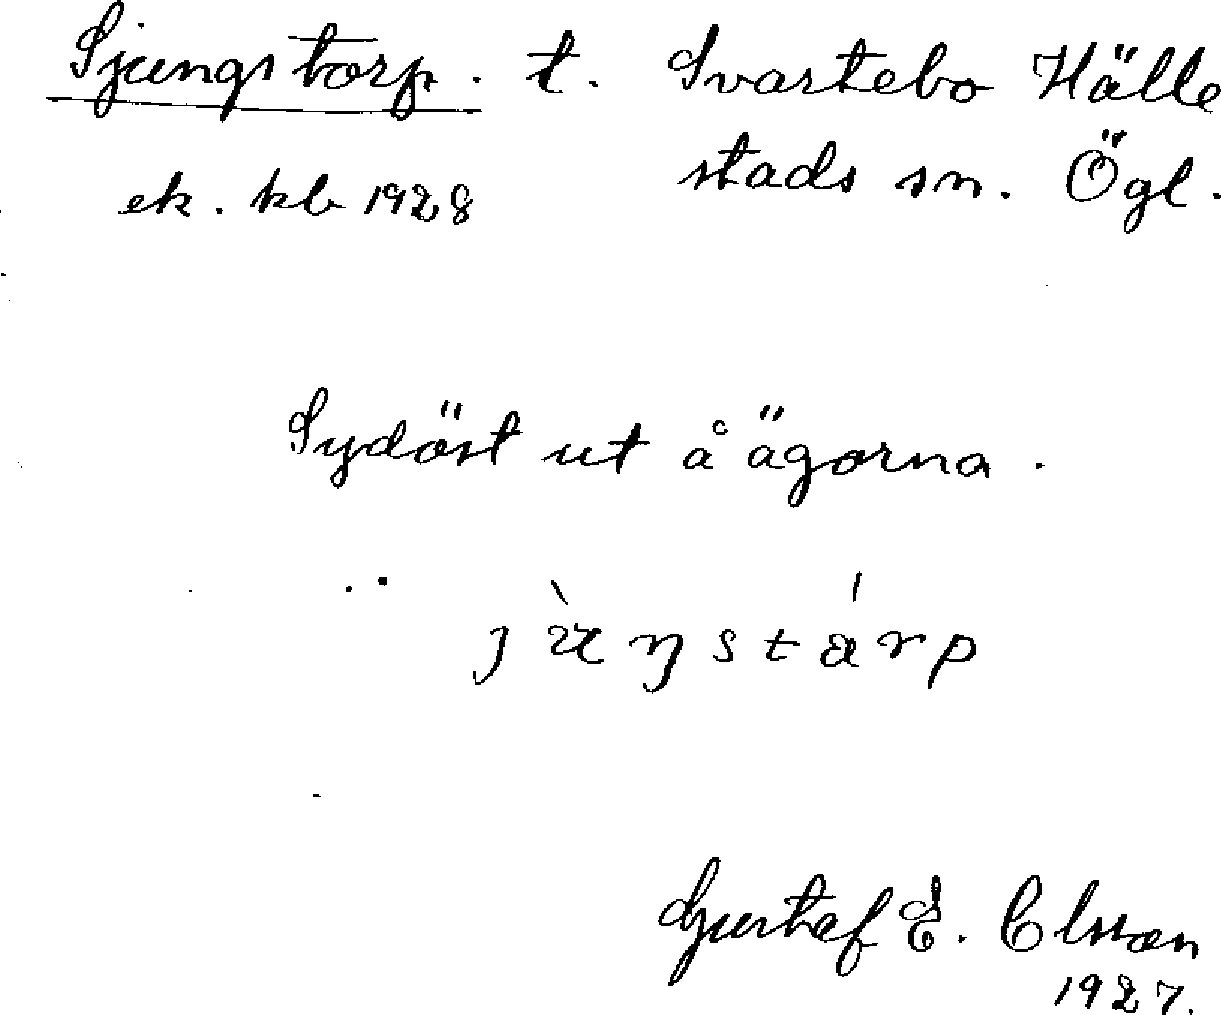 Sjungstorp. t. Svartebo Hälle
stads sn. Ögl.
ek. kb 1928
Sydöst ut å ägorna.
Gustaf E. Olsson
1927.